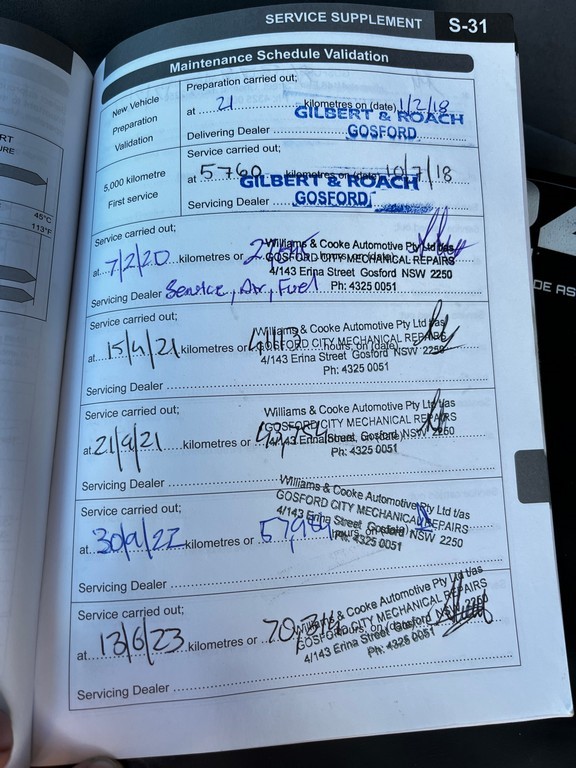 SERVICE SUPPLEMENT S-31
RT
URE
45°C
113°F
DE AS
Maintenance Schedule Validation
New Vehicle
Preparation
Validation
Preparation carried out;
at 21 kilometres on (date) 1/2/18
GILBERT & ROACH
Delivering Dealer GOSFORD
5,000 kilometre
First service
Service carried out;
at 5760 kilometres on (date) 10/7/18
GILBERT & ROACH
Servicing Dealer GOSFORD.
Service carried out;
Williams & Cooke Automotive Pty Ltd t/as
at 7/2/20 kilometres or
GOSFORD CITY MECHANICAL REPAIRS
4/143 Erina Street Gosford NSW 2250
Servicing Dealer Service, Air, Fuel Ph: 4325 0051
Service carried out;
Williams & Cooke Automotive Pty Ltd t/as
GOSFORD CITY MECHANICAL REPAIRS
at 15/4/21 kilometres or hours, on (date)
4/143 Erina Street Gosford NSW 2250
Ph: 4325 0051
Servicing Dealer
Service carried out;
Williams & Cooke Automotive Pty Ltd t/as
GOSFORD CITY MECHANICAL REPAIRS
at 21/9/21 kilometres or
4/143 Erina Street, Gosford NSW 2250
Ph: 4325 0051
Servicing Dealer
Service carried out;
Williams & Cooke Automotive Pty Ltd t/as
GOSFORD CITY MECHANICAL REPAIRS
at 30/9/22 kilometres or
4/143 Erina Street Gosford NSW 2250
Ph: 4325 0051
Servicing Dealer
Service carried out;
Williams & Cooke Automotive Pty Ltd t/as
GOSFORD CITY MECHANICAL REPAIRS
at 13/6/23 kilometres or hours, on (date)
4/143 Erina Street Gosford NSW 2250
Ph: 4325 0051
Servicing Dealer